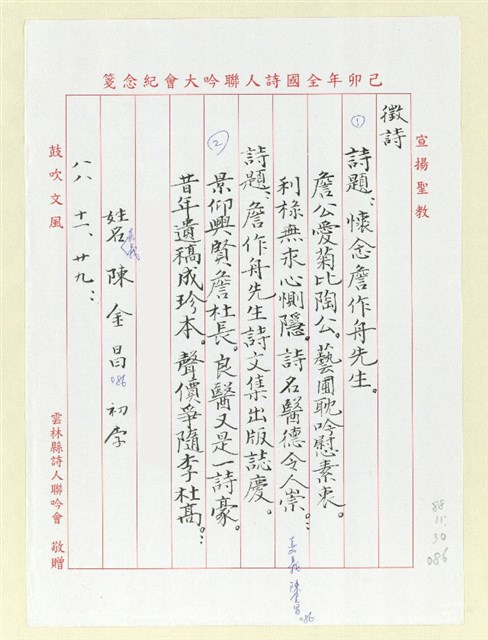 己卯年全國詩人聯吟大會紀念箋
宣揚聖教
徵詩
① 詩題：懷念詹作舟先生。
詹公愛菊比陶公。藝圃耽吟慰素衷。
利祿無求心惻隱。詩名醫德令人崇。
② 詩題：詹作舟先生詩文集出版誌慶。
景仰興賢詹社長。良醫又是一詩豪。
昔年遺稿成珍本。聲價爭隨李杜高。
姓名 嘉義 陳金昌 初学
086
八八 十一、廿九：
鼓吹文風
雲林縣詩人聯吟會 敬贈
嘉義 陳金昌 086
88
11.
30
086